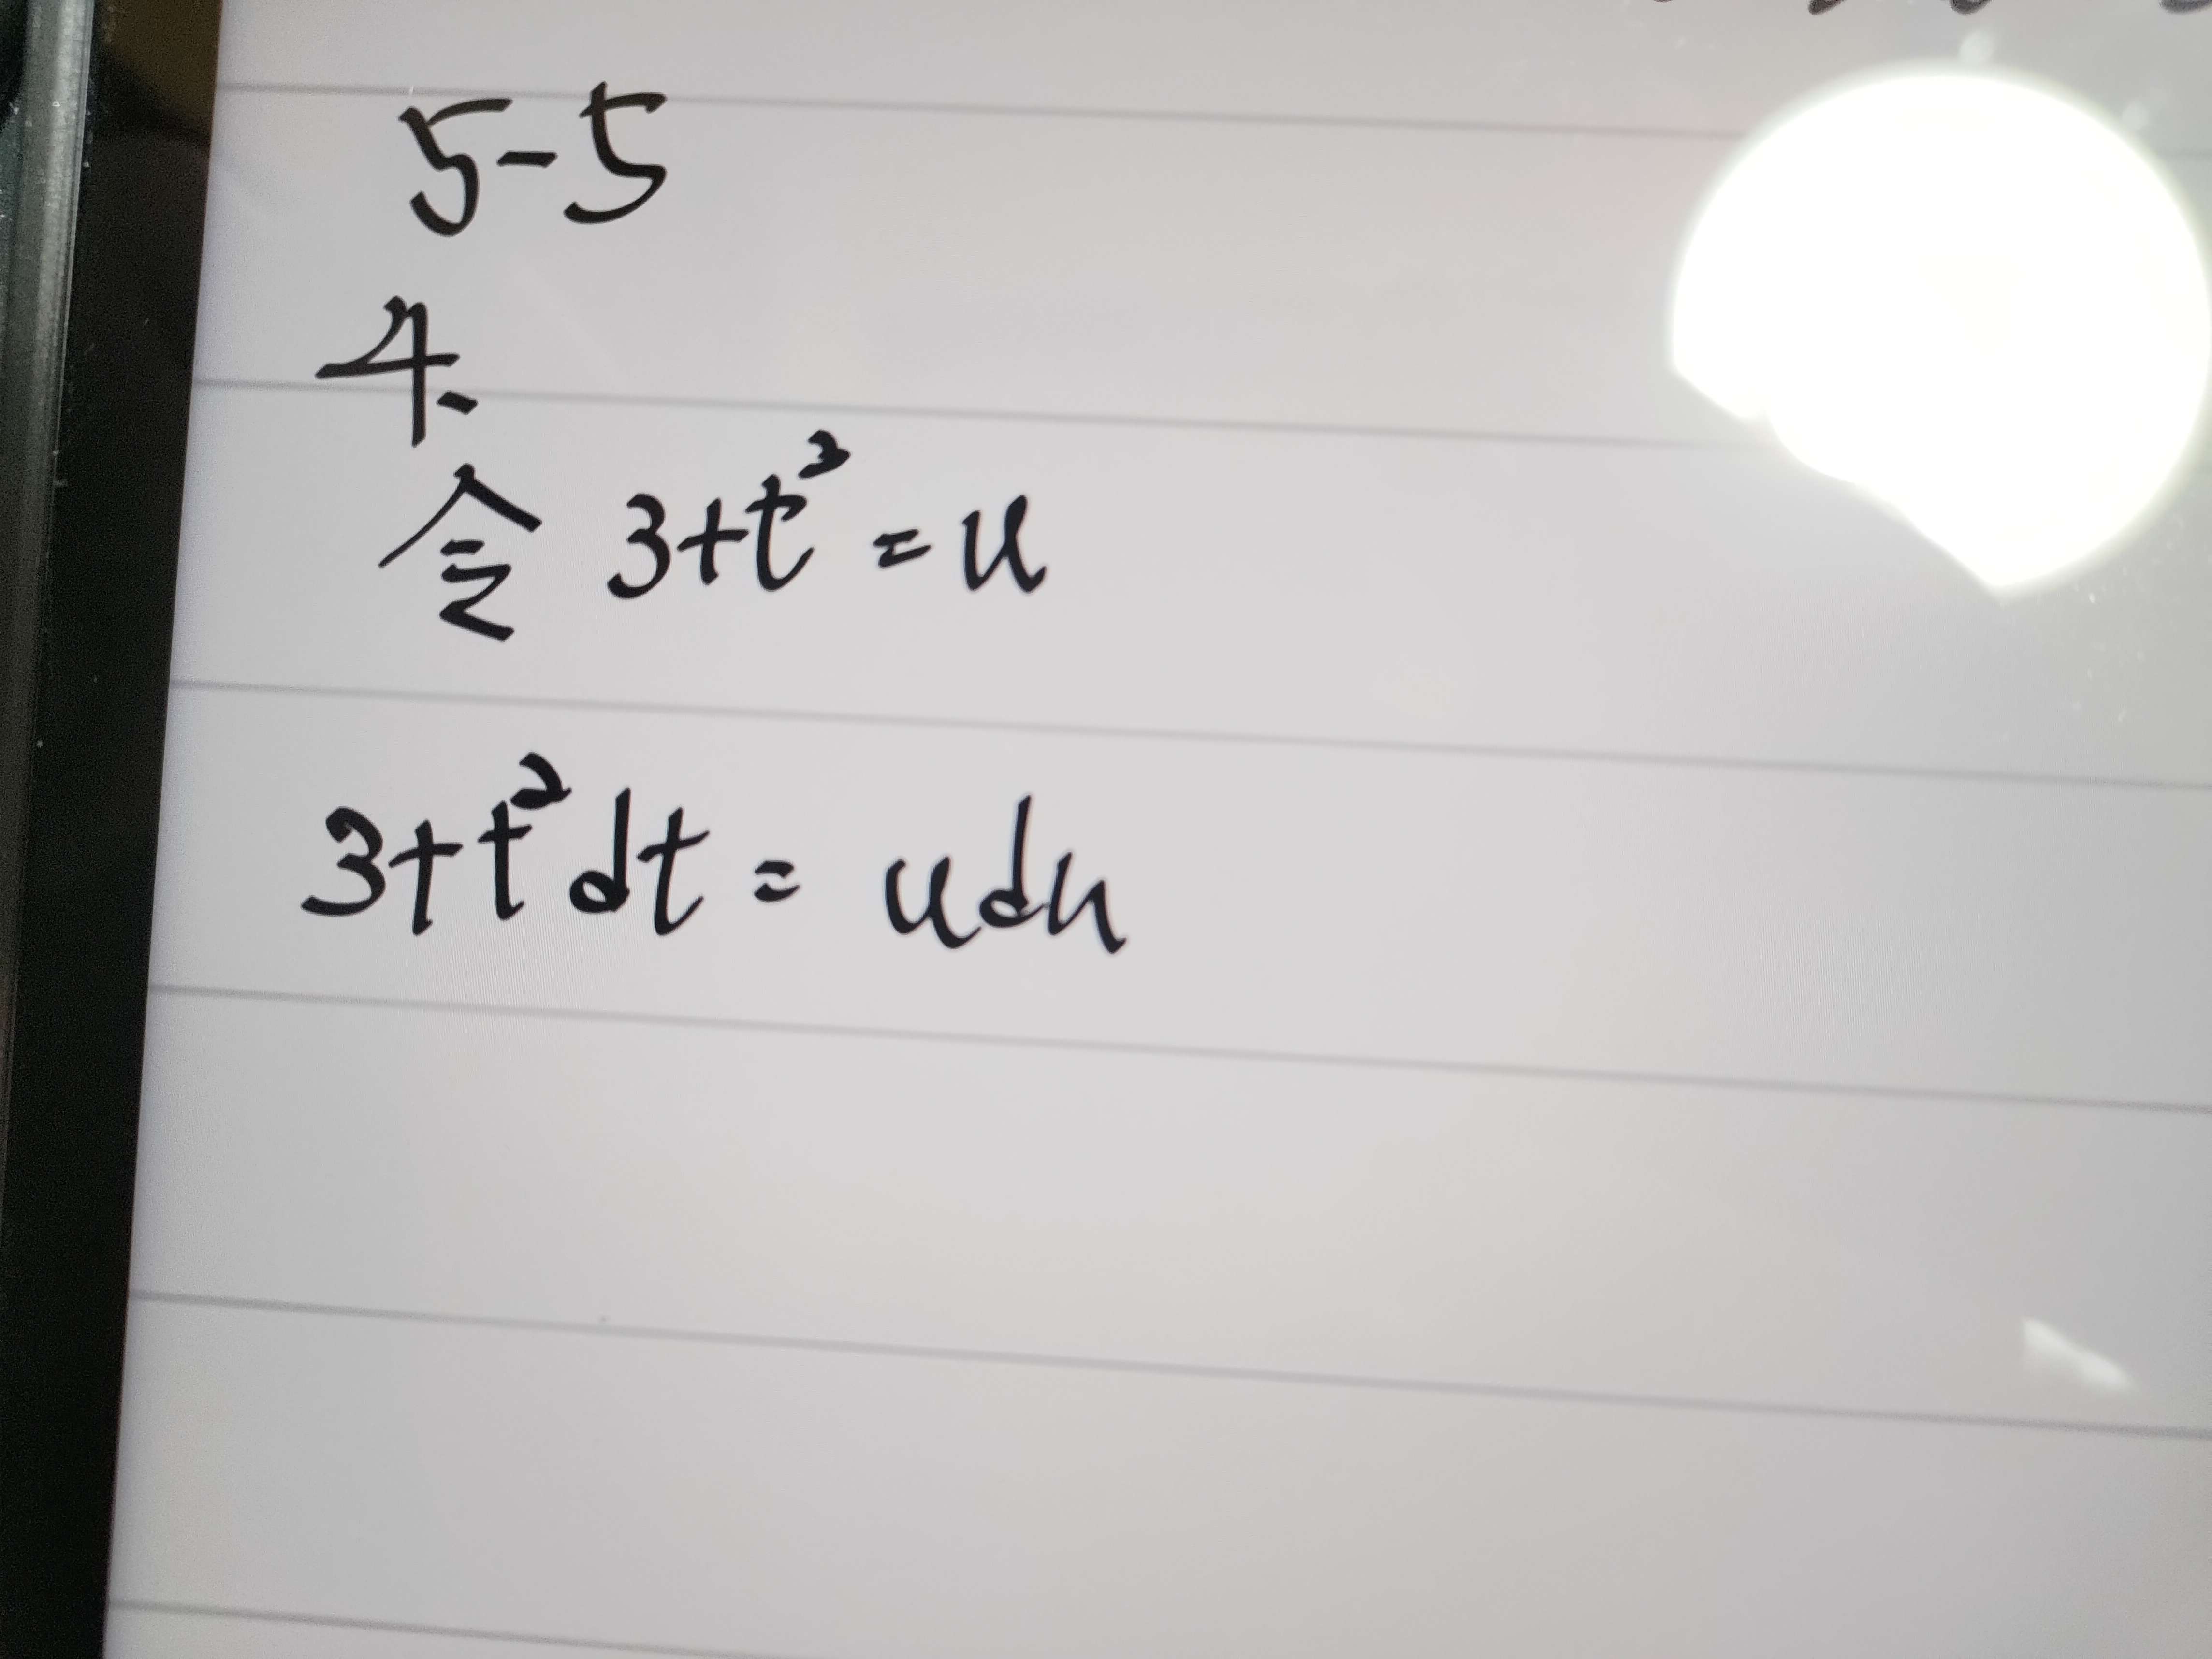 5-5
4、
令 3+t³ = u
3+t² dt = udu